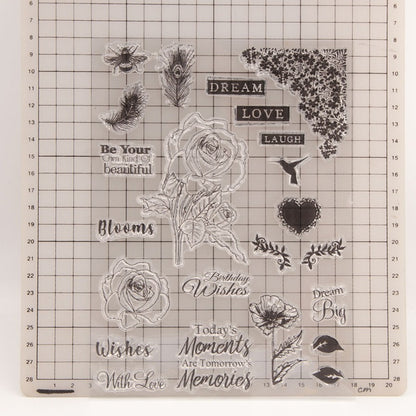 DREAM
LOVE
LAUGH
Be Your
Own Kind Of
beautiful
Blooms
Birthday
Wishes
Dream
Big
Wishes
With Love
Today's
Moments
Are Tomorrow's
Memories
6
7
8
9
10
11
12
13
14
15
16
17
18
19
20
21
22
23
24
25
26
27
28
1 2 3 4 5 6 7 8 9 10 11 12 13 14 15 16 17 18 19 20
cm